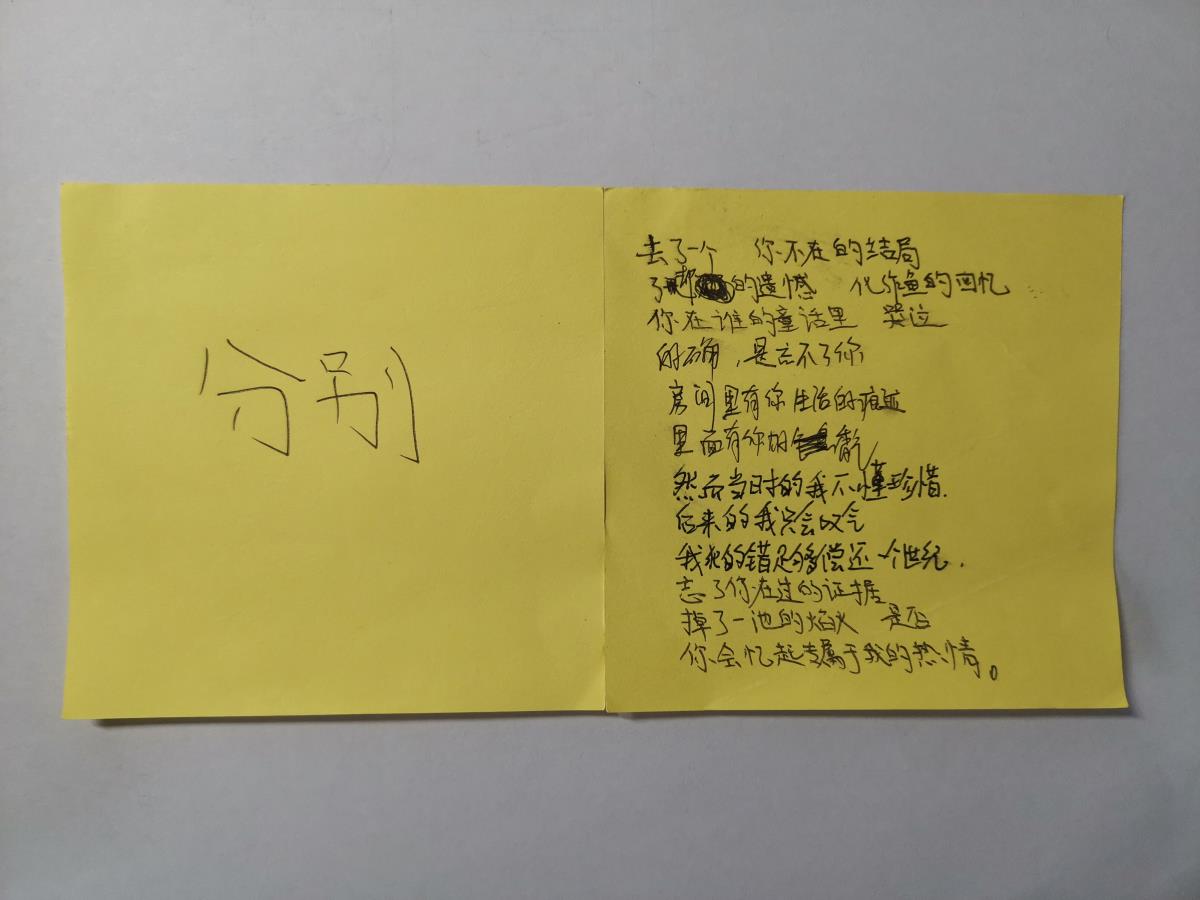 分别
去了一个 你不在的结局
了 的遗憾 化作鱼的回忆
你在谁的童话里 哭泣
的确,是忘不了你
房间里有你生活的痕迹
里面有你的
然而当时的我不懂珍惜.
后来的我只会叹气
我犯的错足够偿还一个世纪.
忘了你在过的证据
掉了一池的焰火 是否
你会忆起专属于我的热情。